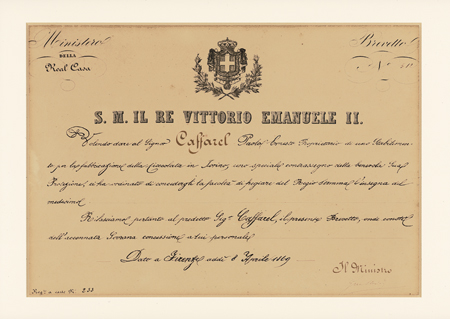 Ministero
DELLA
Real Casa
Brevetto
N.
S. M. IL RE VITTORIO EMANUELE II.
Volendo dare al Signor Caffarel Paolo Ernesto Proprietario di uno Stabilimen-
to per la fabbricazione della Cioccolata in Torino, uno speciale contrassegno della benevola Sua
Protezione, ci ha ordinato di concedergli la facoltà di fregiare del Regio Stemma l'insegna del
medesimo
Rilasciamo pertanto al predetto Sigr. Caffarel, il presente Brevetto, onde consti
dell'accennata Sovrana concessione a lui personale.
Dato a Firenze addì 8 Aprile 1869
Il Ministro
Regto a carte No. 233